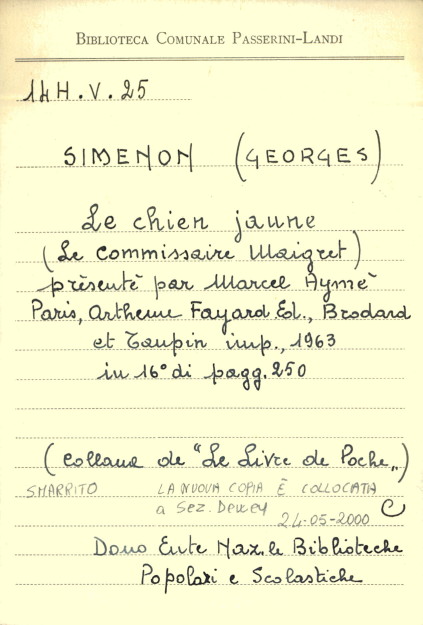 BIBLIOTECA COMUNALE PASSERINI-LANDI
14 H. V. 25
SIMENON (GEORGES)
Le chien jaune
(Le Commissaire Maigret)
présenté par Marcel Aymé
Paris, Artheme Fayard Ed., Brodard
et Taupin imp., 1963
in 16° di pagg. 250
(Collana de "Le Livre de Poche„)
SMARRITO LA NUOVA COPIA È COLLOCATA
a Sez. Dewey
24-05-2000
Dono Ente Naz.le Biblioteche
Popolari e Scolastiche